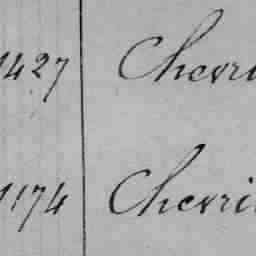 1427 Chevri
1174 Chevri